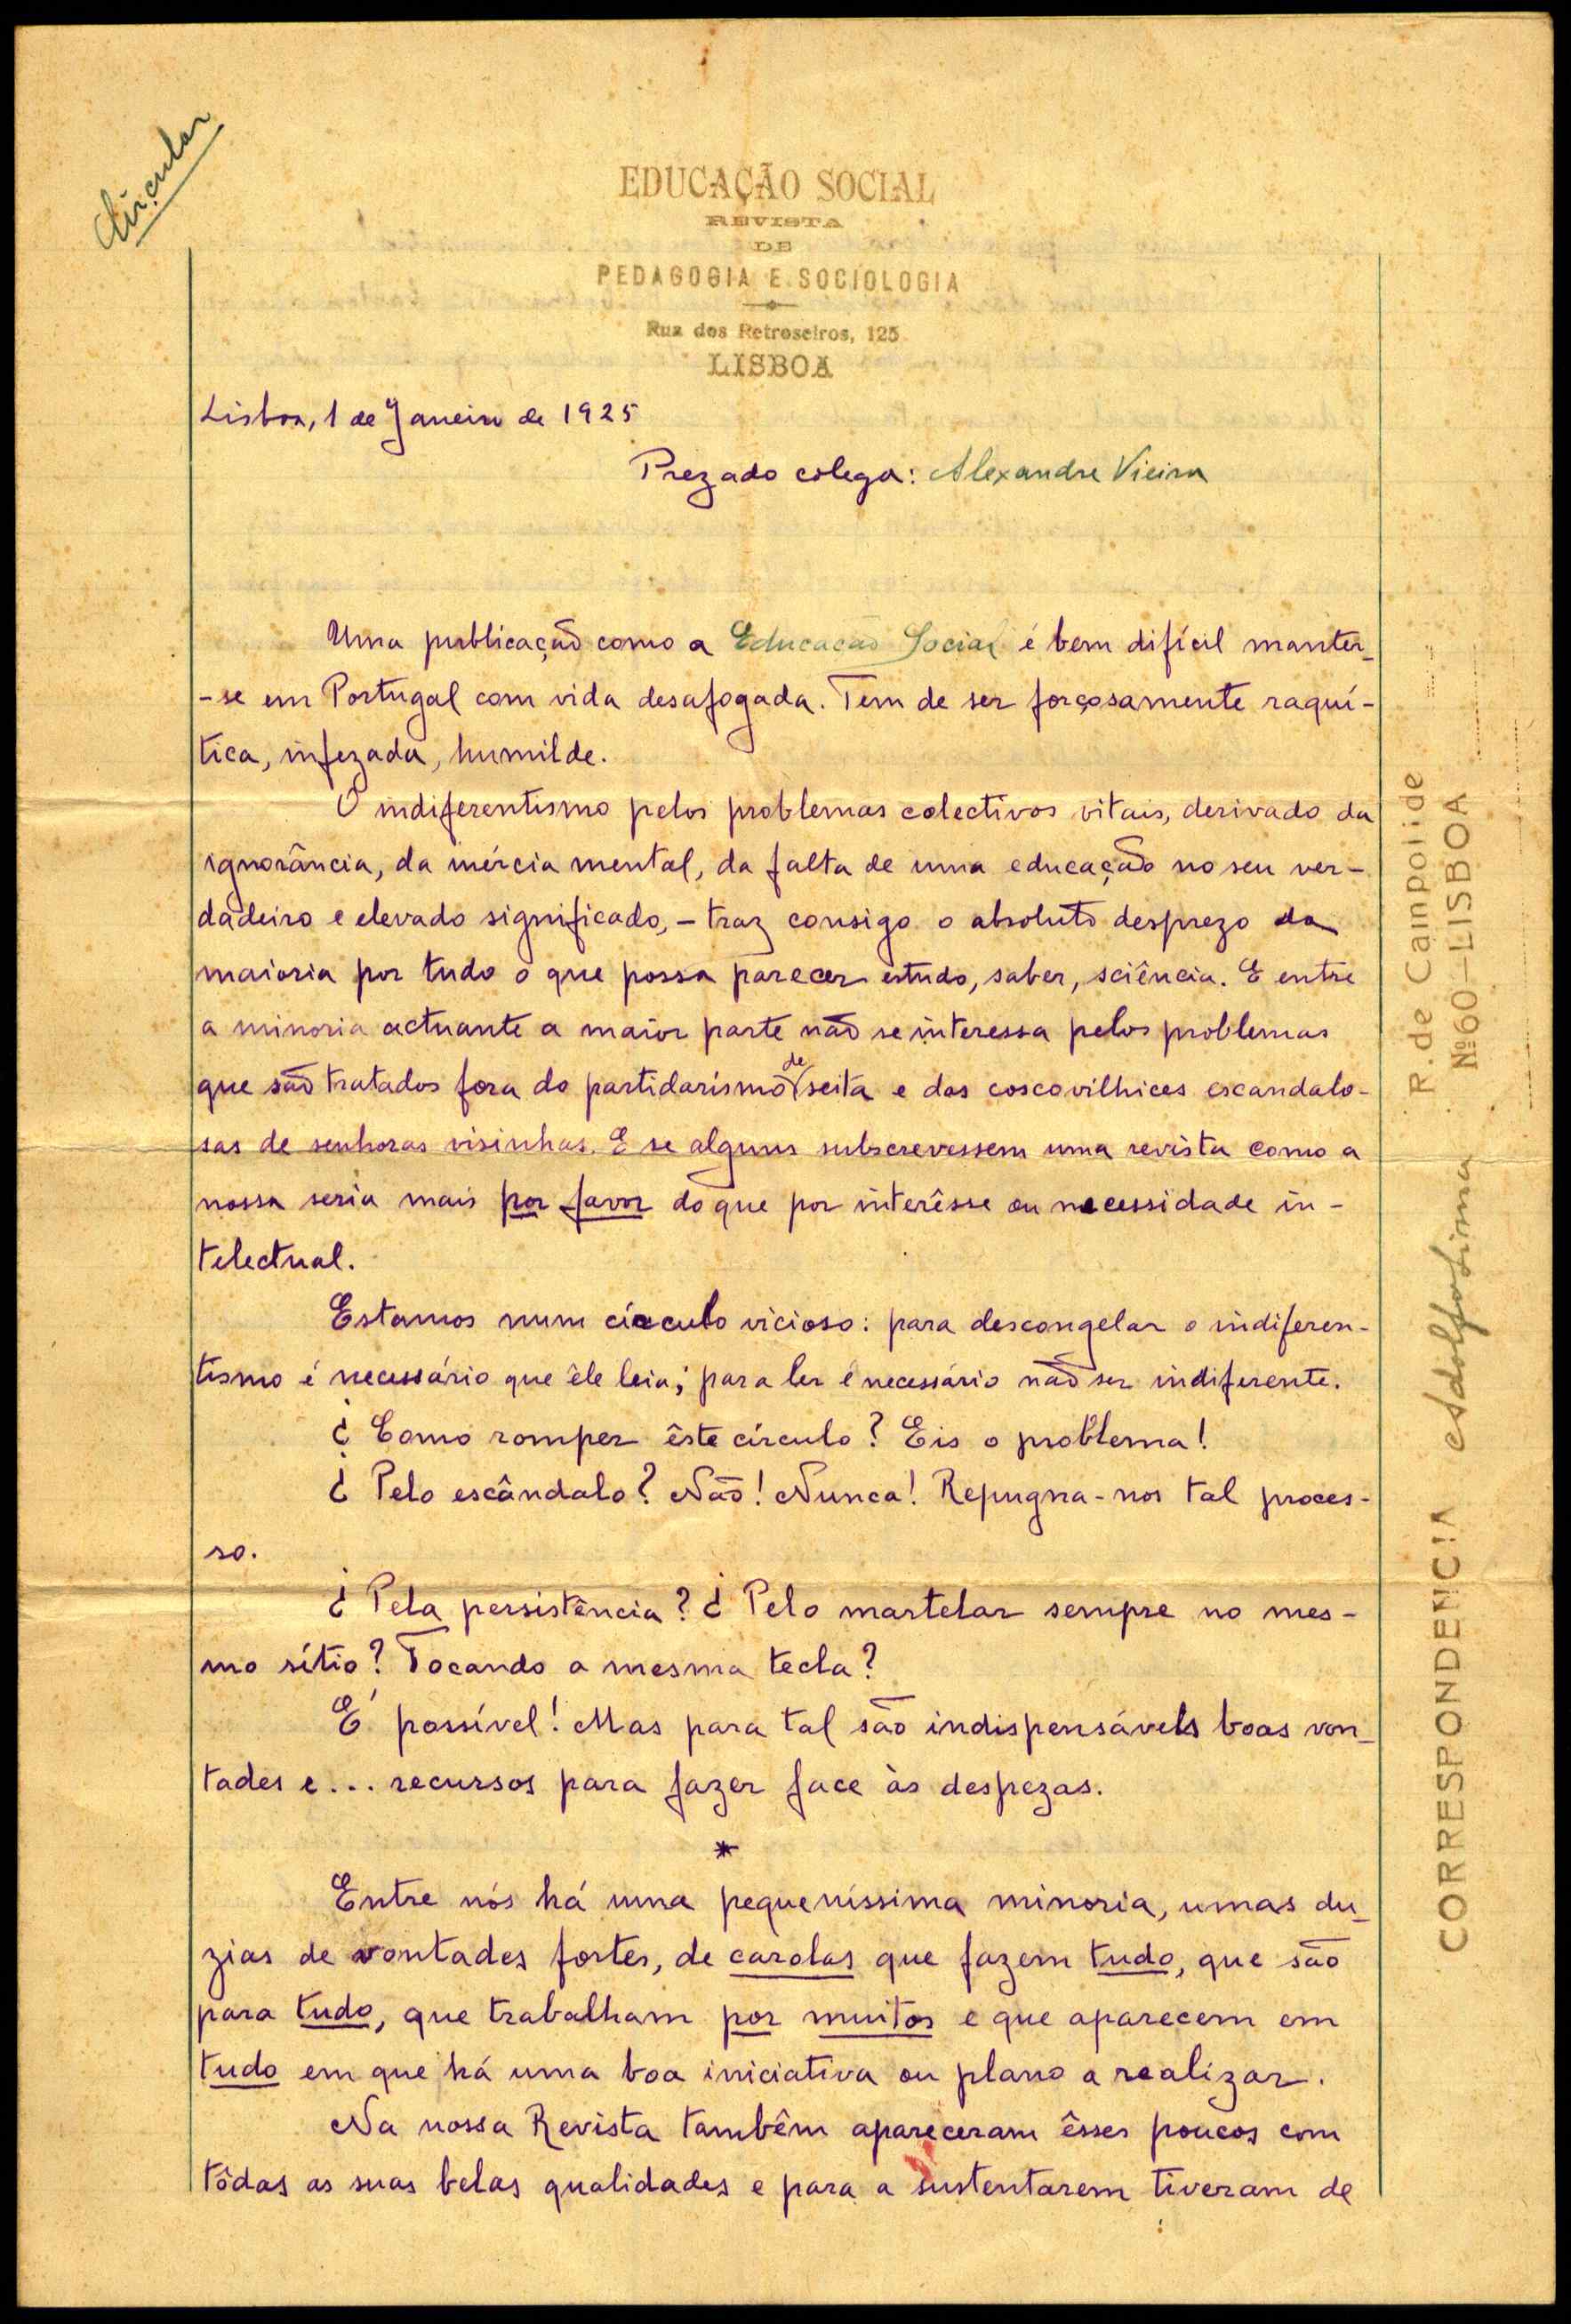 Circular
EDUCAÇÃO SOCIAL
REVISTA
DE
PEDAGOGIA E SOCIOLOGIA
Rua dos Retroseiros, 125
LISBOA
Lisboa, 1 de Janeiro de 1925
Prezado colega: Alexandre Vieira
Uma publicação como a Educação Social é bem difícil manter-
-se em Portugal com vida desafogada. Tem de ser forçosamente raquí-
tica, infezada, humilde.
O indiferentismo pelos problemas colectivos vitais, derivado da
ignorância, da inércia mental, da falta de uma educação no seu ver-
dadeiro e elevado significado, - traz consigo o absoluto desprezo da
maioria por tudo o que possa parecer estudo, saber, sciência. E entre
a minoria actuante a maior parte não se interessa pelos problemas
que são tratados fora do partidarismo de seita e das coscovilhices escandalo-
sas de senhoras visinhas. E se alguns subscrevessem uma revista como a
nossa seria mais por favor do que por interêsse ou necessidade in-
telectual.
Estamos num círculo vicioso: para descongelar o indiferen-
tismo é necessário que êle leia; para ler é necessário não ser indiferente.
¿ Como romper êste círculo? Eis o problema!
¿ Pelo escândalo? Não! Nunca! Repugna-nos tal proces-
so.
¿ Pela persistência? ¿ Pelo martelar sempre no mes-
mo sítio? Tocando a mesma tecla?
É possível! Mas para tal são indispensáveis boas von-
tades e... recursos para fazer face às despezas.
*
Entre nós há uma pequeníssima minoria, umas du-
zias de vontades fortes, de carolas que fazem tudo, que são
para tudo, que trabalham por muitos e que aparecem em
tudo em que há uma boa iniciativa ou plano a realizar.
Na nossa Revista tambêm apareceram êsses poucos com
tôdas as suas belas qualidades e para a sustentarem tiveram de
CORRESPONDENCIA Adolfo Lima R. de Campolide
Nº 60-LISBOA